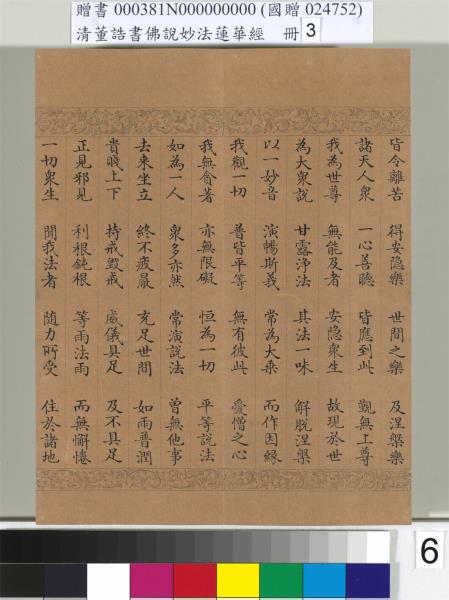 贈書 000381N000000000 (國贈 024752)
清董誥書佛說妙法蓮華經 冊 3
皆令離苦 得安隐樂 世間之樂 及涅槃樂
諸天人衆 一心善聽 皆應到此 覲無上尊
我為世尊 無能及者 安隐衆生 故現於世
為大衆說 甘露淨法 其法一味 解脫涅槃
以一妙音 演暢斯義 常為大乘 而作因緣
我觀一切 普皆平等 無有彼此 愛憎之心
我無貪著 亦無限礙 恒為一切 平等說法
如為一人 衆多亦然 常演說法 曾無他事
去來坐立 終不疲厭 充足世間 如雨普潤
貴賤上下 持戒毀戒 威儀具足 及不具足
正見邪見 利根鈍根 等雨法雨 而無懈惓
一切衆生 聞我法者 随力所受 住於諸地
6